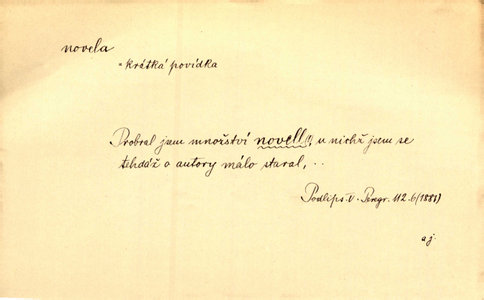 novela
= krátká povídka
Probral jsem množství novell(!) u nichž jsem se
tehdáž o autory málo staral, ..
Podlips. V. Peregr. 112.6 (1881)
aj.